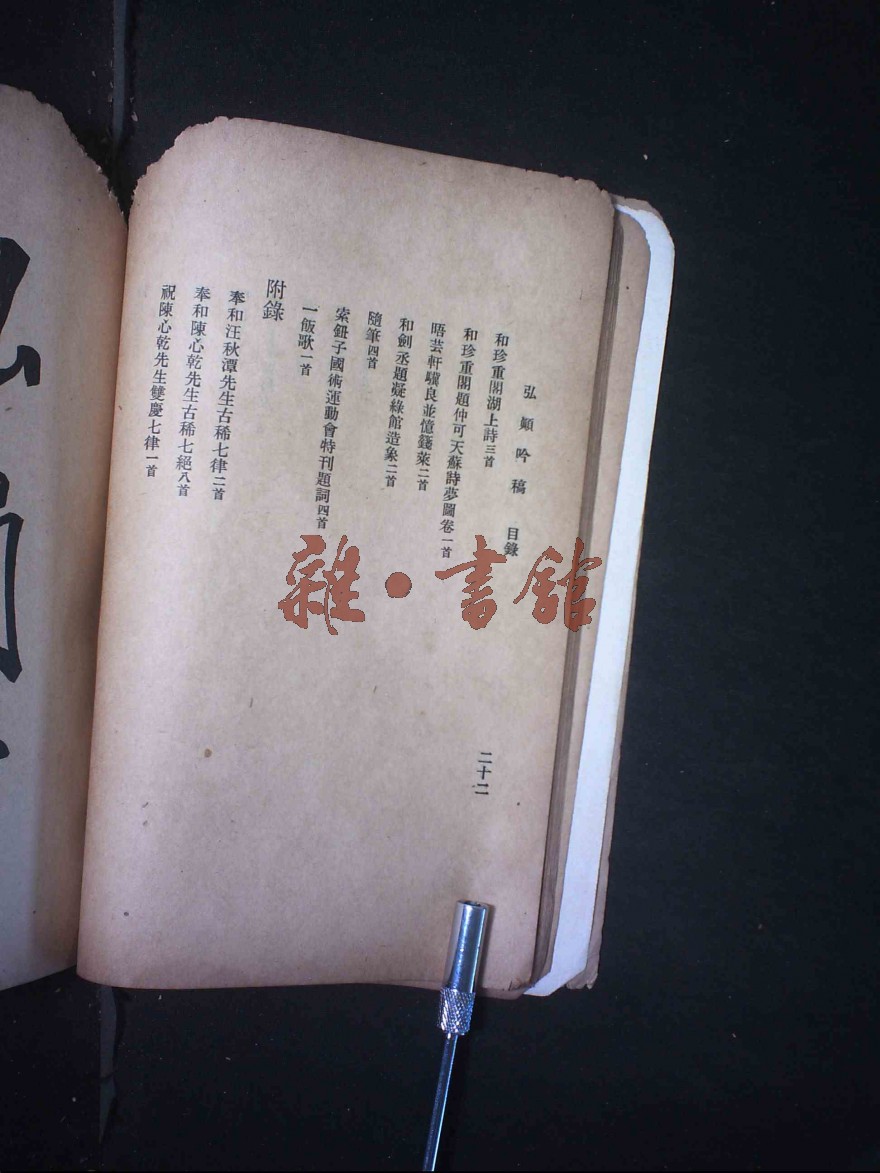 弘顚吟稿 目錄 二十二
和珍重閣湖上詩三首
和珍重閣題仲可天蘇詩夢圖卷一首
唔芸軒驥良並憶籛萊二首
和劍丞題凝綠館造象二首
隨筆四首
索鈕子國術運動會特刊題詞四首
一飯歌一首
附錄
奉和汪秋潭先生古稀七律二首
奉和陳心乾先生古稀七絕八首
祝陳心乾先生雙慶七律一首
雜·書館